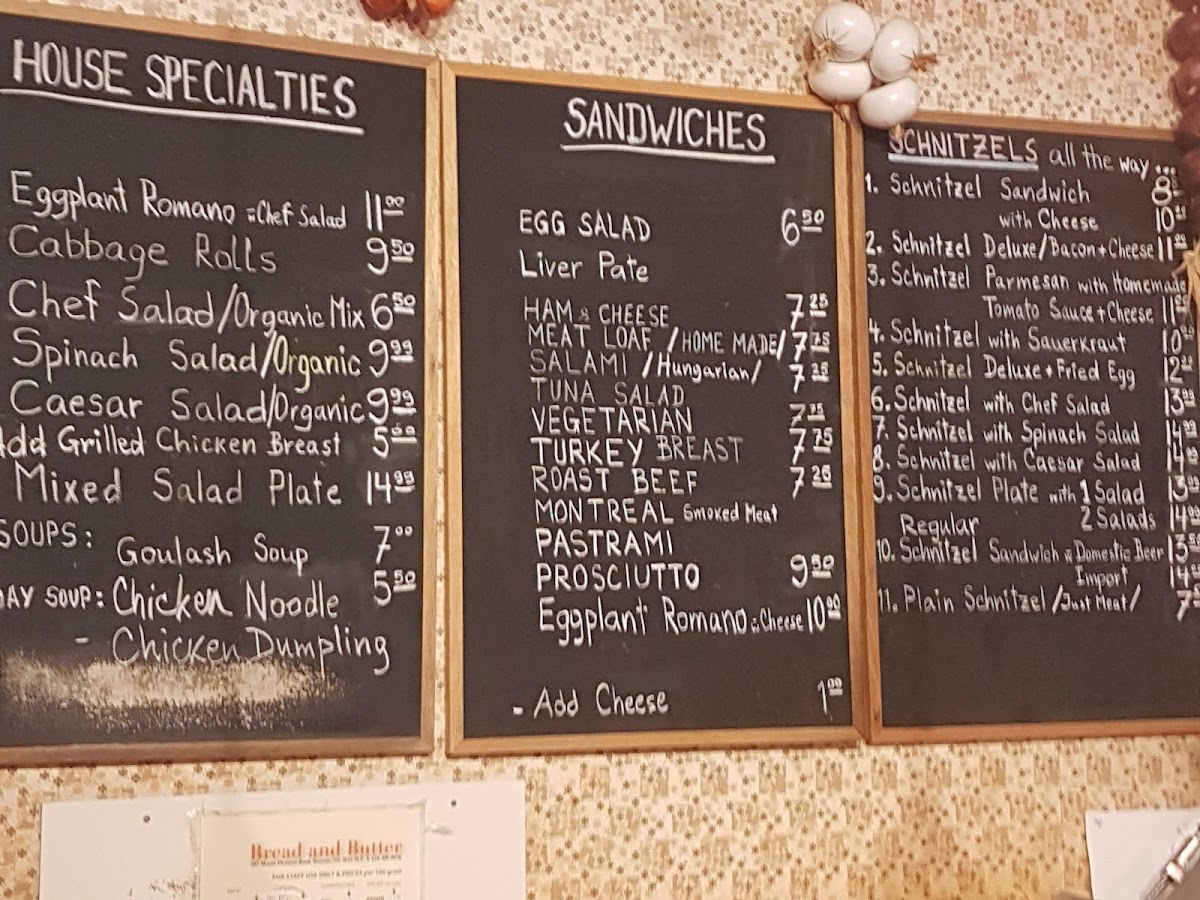 HOUSE SPECIALTIES
Eggplant Romano w Chef Salad 11.00
Cabbage Rolls 9.50
Chef Salad/Organic Mix 6.50
Spinach Salad/Organic 9.99
Caesar Salad/Organic 9.99
Add Grilled Chicken Breast 5.00
Mixed Salad Plate 14.99
SOUPS: Goulash Soup 7.00
DAY SOUP: Chicken Noodle 5.50
- Chicken Dumpling
SANDWICHES
EGG SALAD 6.50
Liver Pate
HAM & CHEESE 7.25
MEAT LOAF /HOME MADE/ 7.75
SALAMI /Hungarian/ 7.25
TUNA SALAD
VEGETARIAN 7.25
TURKEY BREAST 7.75
ROAST BEEF 7.25
MONTREAL Smoked Meat
PASTRAMI
PROSCIUTTO 9.50
Eggplant Romano w Cheese 10.00
- Add Cheese 1.00
SCHNITZELS all the way ...
1. Schnitzel Sandwich 8
with Cheese 10
2. Schnitzel Deluxe/Bacon+Cheese 11
3. Schnitzel Parmesan with Homemade
Tomato Sauce+Cheese 11
4. Schnitzel with Sauerkraut 10
5. Schnitzel Deluxe+Fried Egg 12
6. Schnitzel with Chef Salad 13
7. Schnitzel with Spinach Salad 14
8. Schnitzel with Caesar Salad 14
9. Schnitzel Plate with 1 Salad 13
Regular 2 Salads 14
10. Schnitzel Sandwich w Domestic Beer 13
Import 14
11. Plain Schnitzel /Just Meat/ 7
Bread and Butter